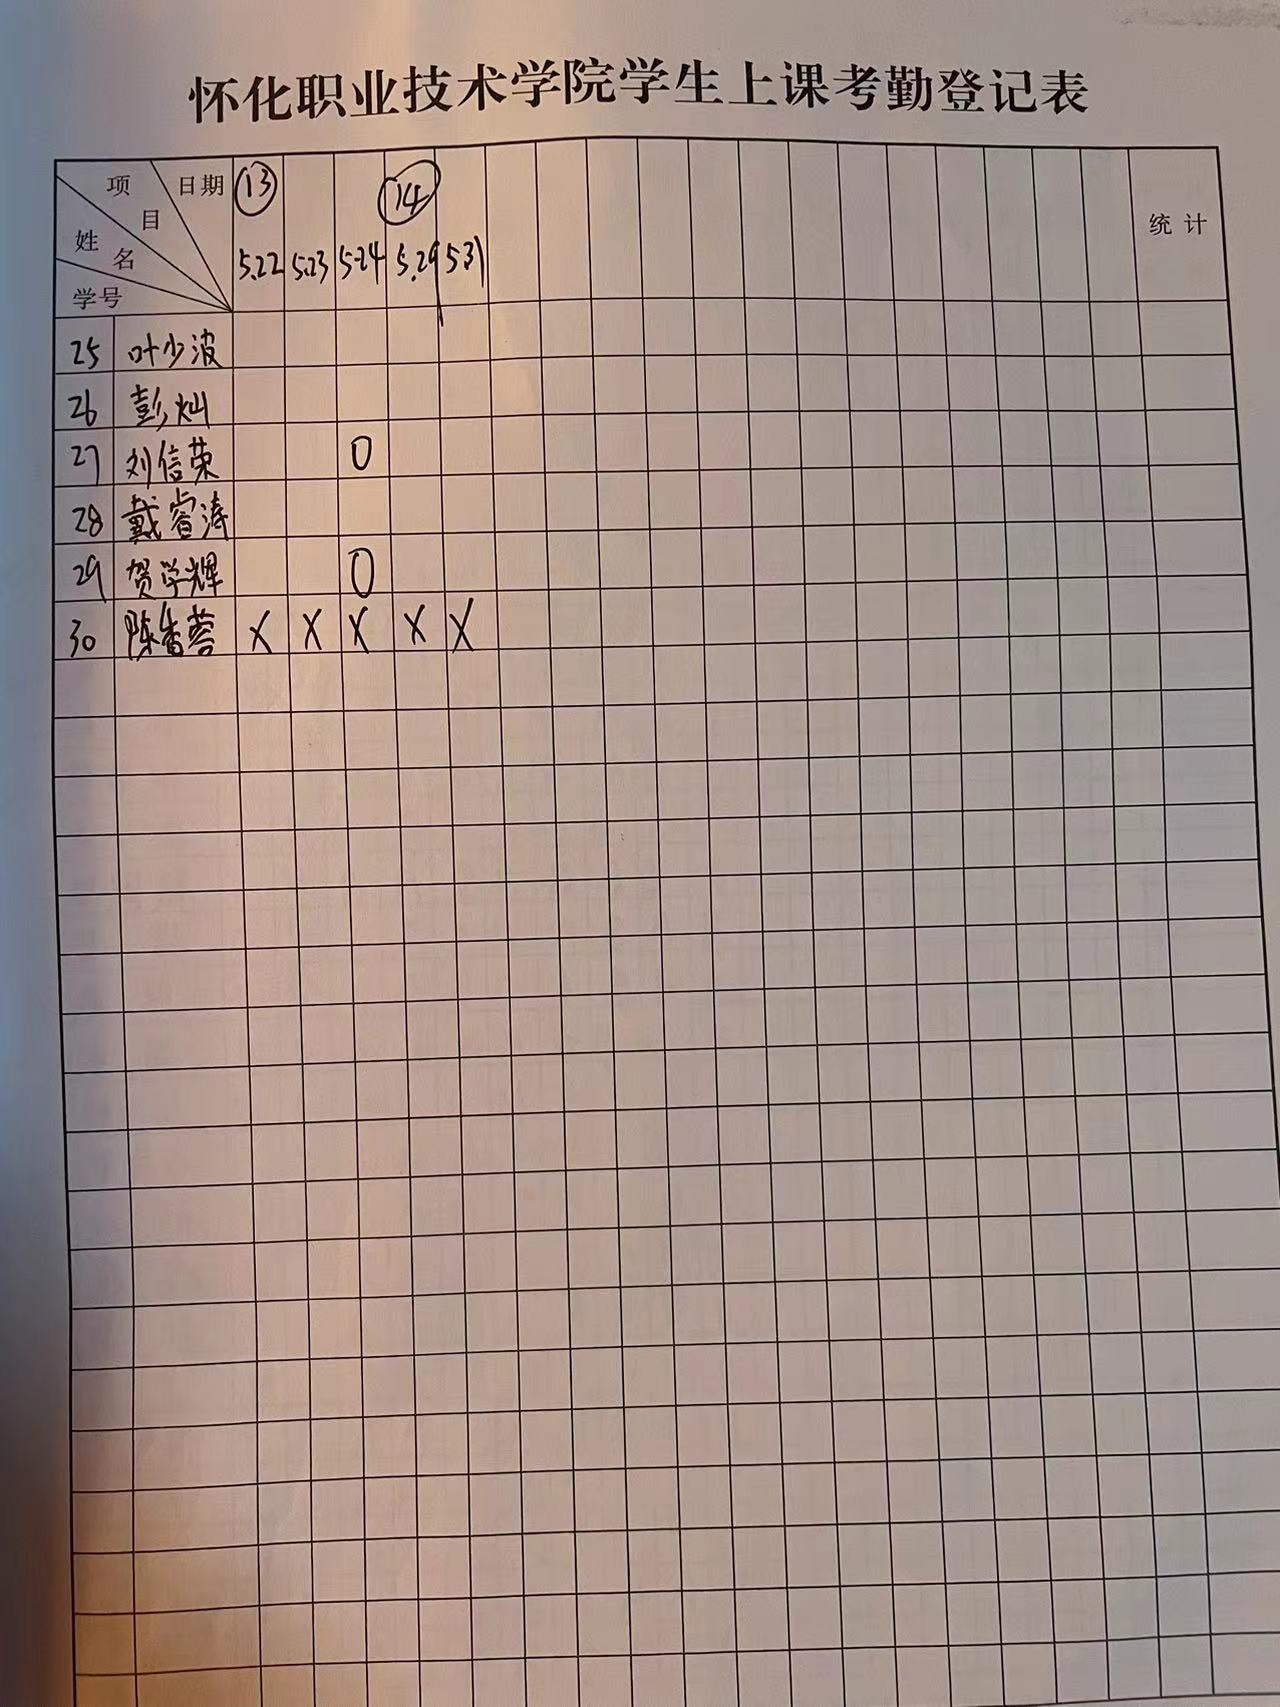 怀化职业技术学院学生上课考勤登记表
项目 日期 ⑬ ⑭ 统计
姓名 5.22 5.23 5.24 5.29 5.31
学号
25 叶少波
26 彭灿
27 刘信荣 0
28 戴睿涛
29 贺学辉 0
30 陈香蓉 X X X X X